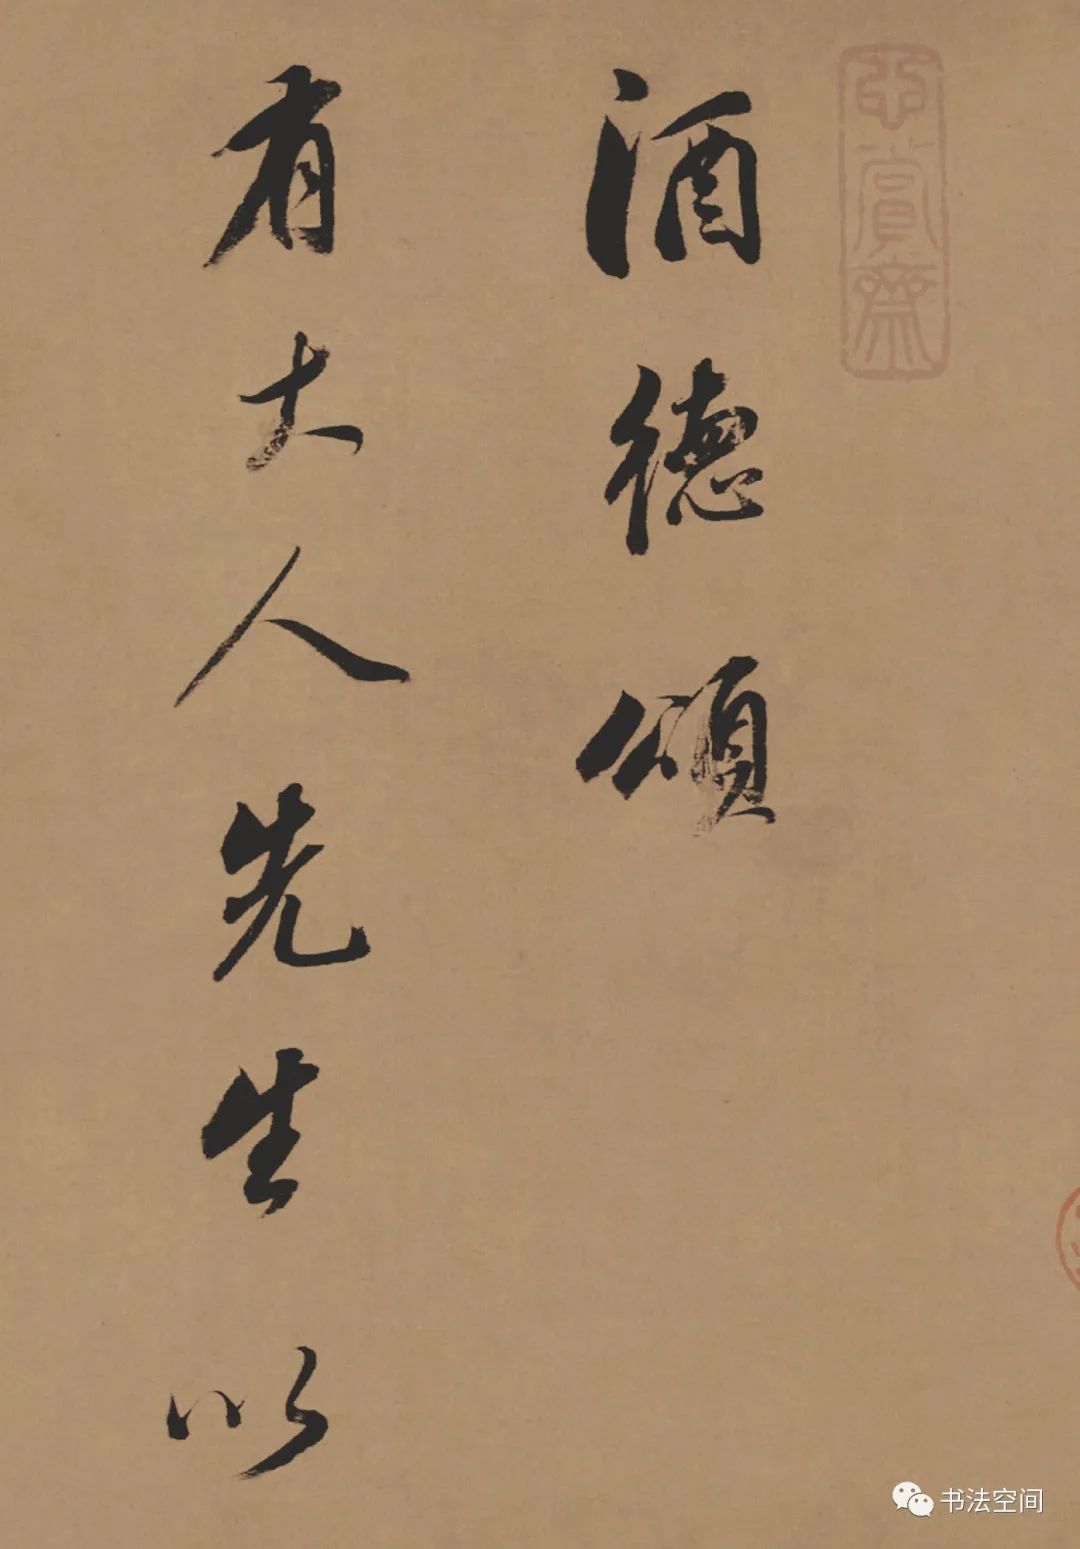 玄賞齋
酒德頌
有大人先生以
书法空间